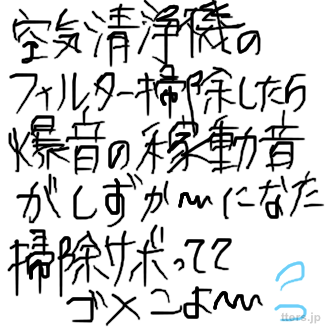 空気清浄機の
フィルター掃除したら
爆音の稼動音
がしずか〜になた
掃除サボってて
ゴメンよ〜
tters.jp